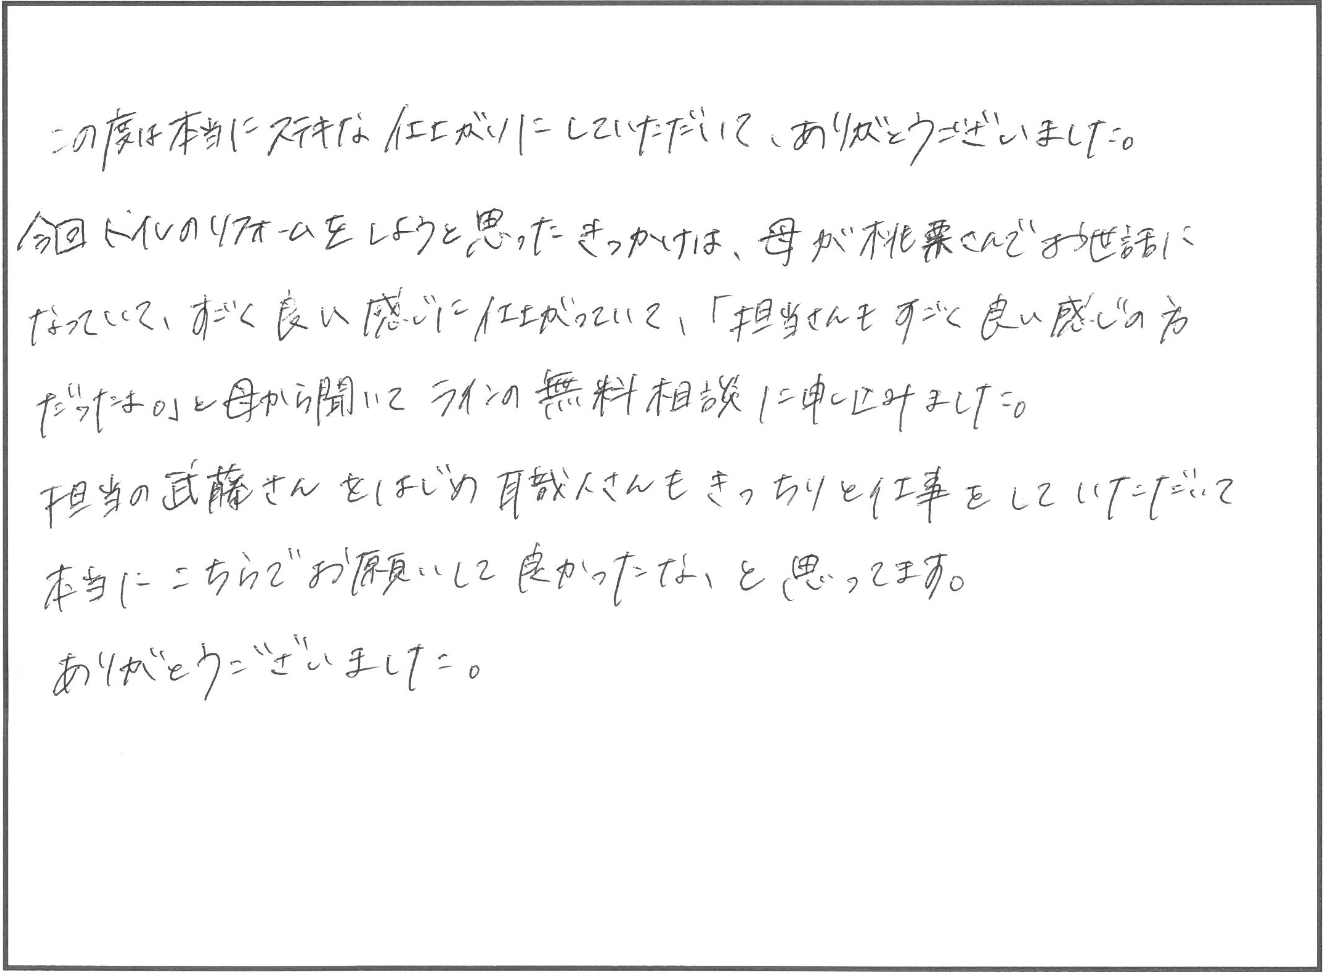 この度は本当にステキな仕上がりにしていただいて、ありがとうございました。
今回トイレのリフォームをしようと思ったきっかけは、母が桃栗さんでお世話に
なっていて、すごく良い感じに仕上がっていて、「担当さんもすごく良い感じの方
だったよ。」と母から聞いてラインの無料相談に申し込みました。
担当の武藤さんをはじめ職人さんもきっちりと仕事をしていただいて
本当にこちらでお願いして良かったな、と思ってます。
ありがとうございました。